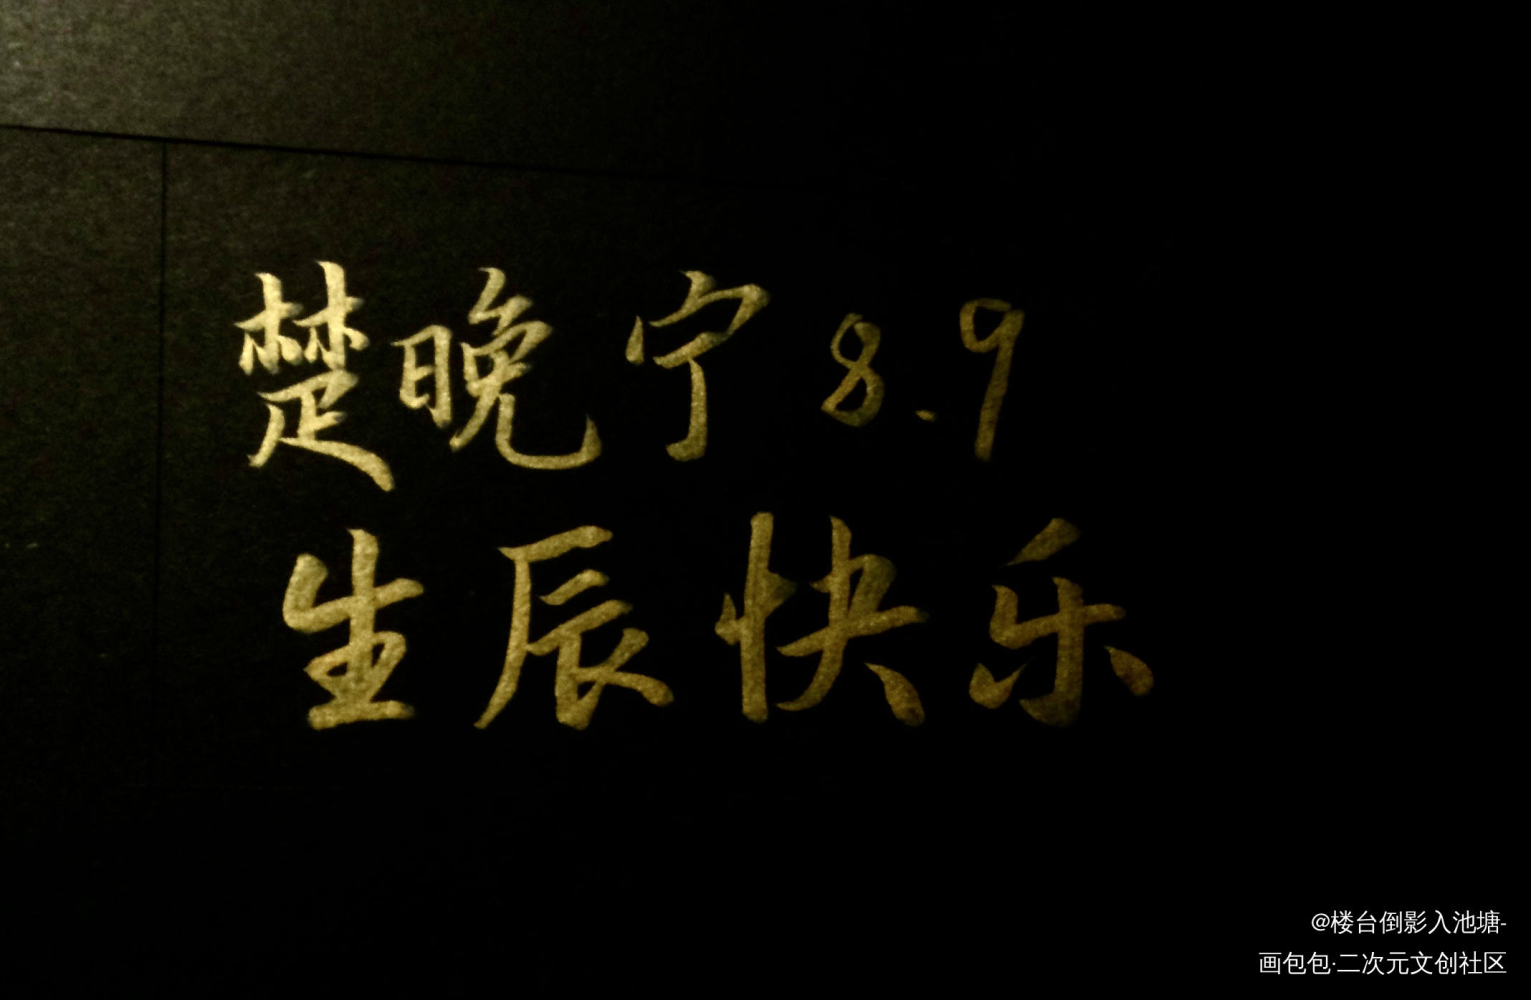 楚晚宁 8.9
生辰快乐
@楼台倒影入池塘-
画包包·二次元文创社区